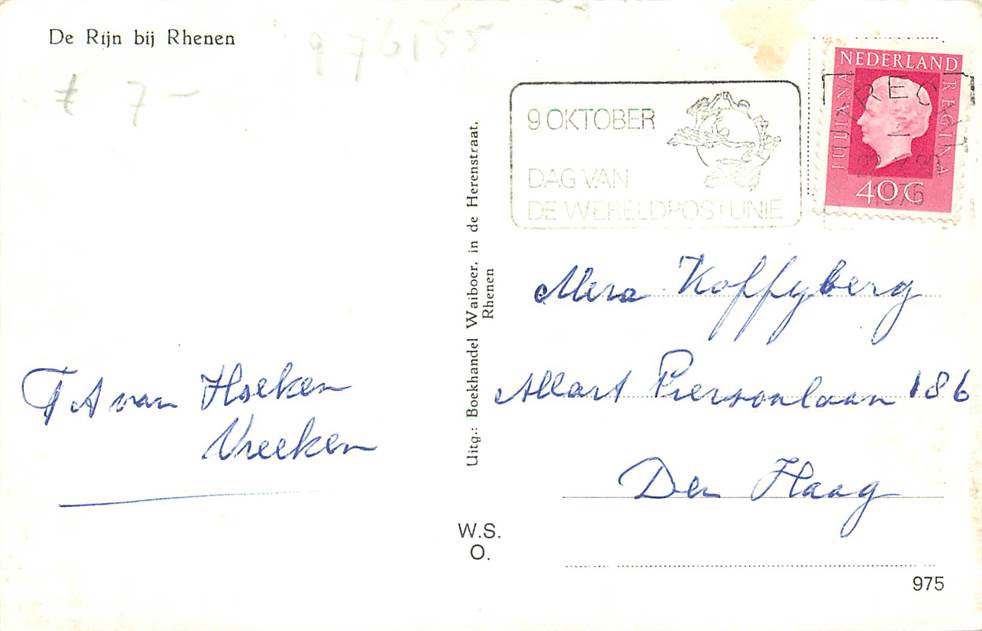 De Rijn bij Rhenen
976155
£ 7-
9 OKTOBER
DAG VAN
DE WERELDPOSTUNIE
NEDERLAND
JULIANA REGINA
40c
1976
Uitg.: Boekhandel Waiboer, in de Herenstraat,
Rhenen
Koffyberg
Allart Piersonlaan 186
Den Haag
T A van Hoeken
Vreeken
W.S.
O.
975